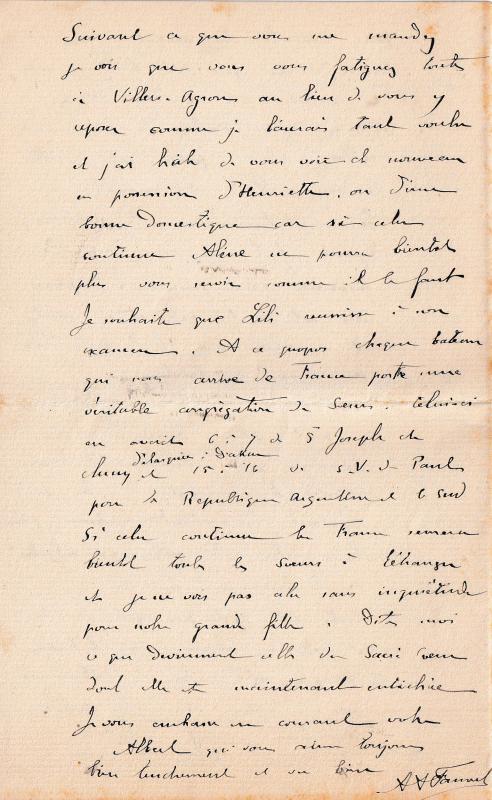 Suivant ce que vous me mandez
je vois que vous vous fatiguez toute
à Villers-Agron au lieu de vous y
reposer comme je l'aurais tant voulu
et j'ai hâte de vous voir de nouveau
en possession d'Henriette, ou d'une
bonne domestique car si cela
continue ne pourra bientôt
plus vous servir comme il le faut
Je souhaite que Lili réussisse à son
examen. A ce propos chaque bateau
qui nous arrive de France porte une
véritable congrégation de Sœurs. Celui-ci
en avait 6 à 7 de St Joseph de
Cluny et 15 à 16 de S.V. de Paul
débarquées à Dakar
pour la République Argentine et le Sud
Si cela continue la France
bientôt toutes les Sœurs à l'étranger
et je ne vois pas cela sans inquiétude
pour notre grande fille. Dites moi
ce que deviennent celles du Sacré Cœur
dont elle est maintenant entichée
Je vous embrasse en courant votre
Albert qui vous aime toujours
bien tendrement et va bien
A A Fauvel